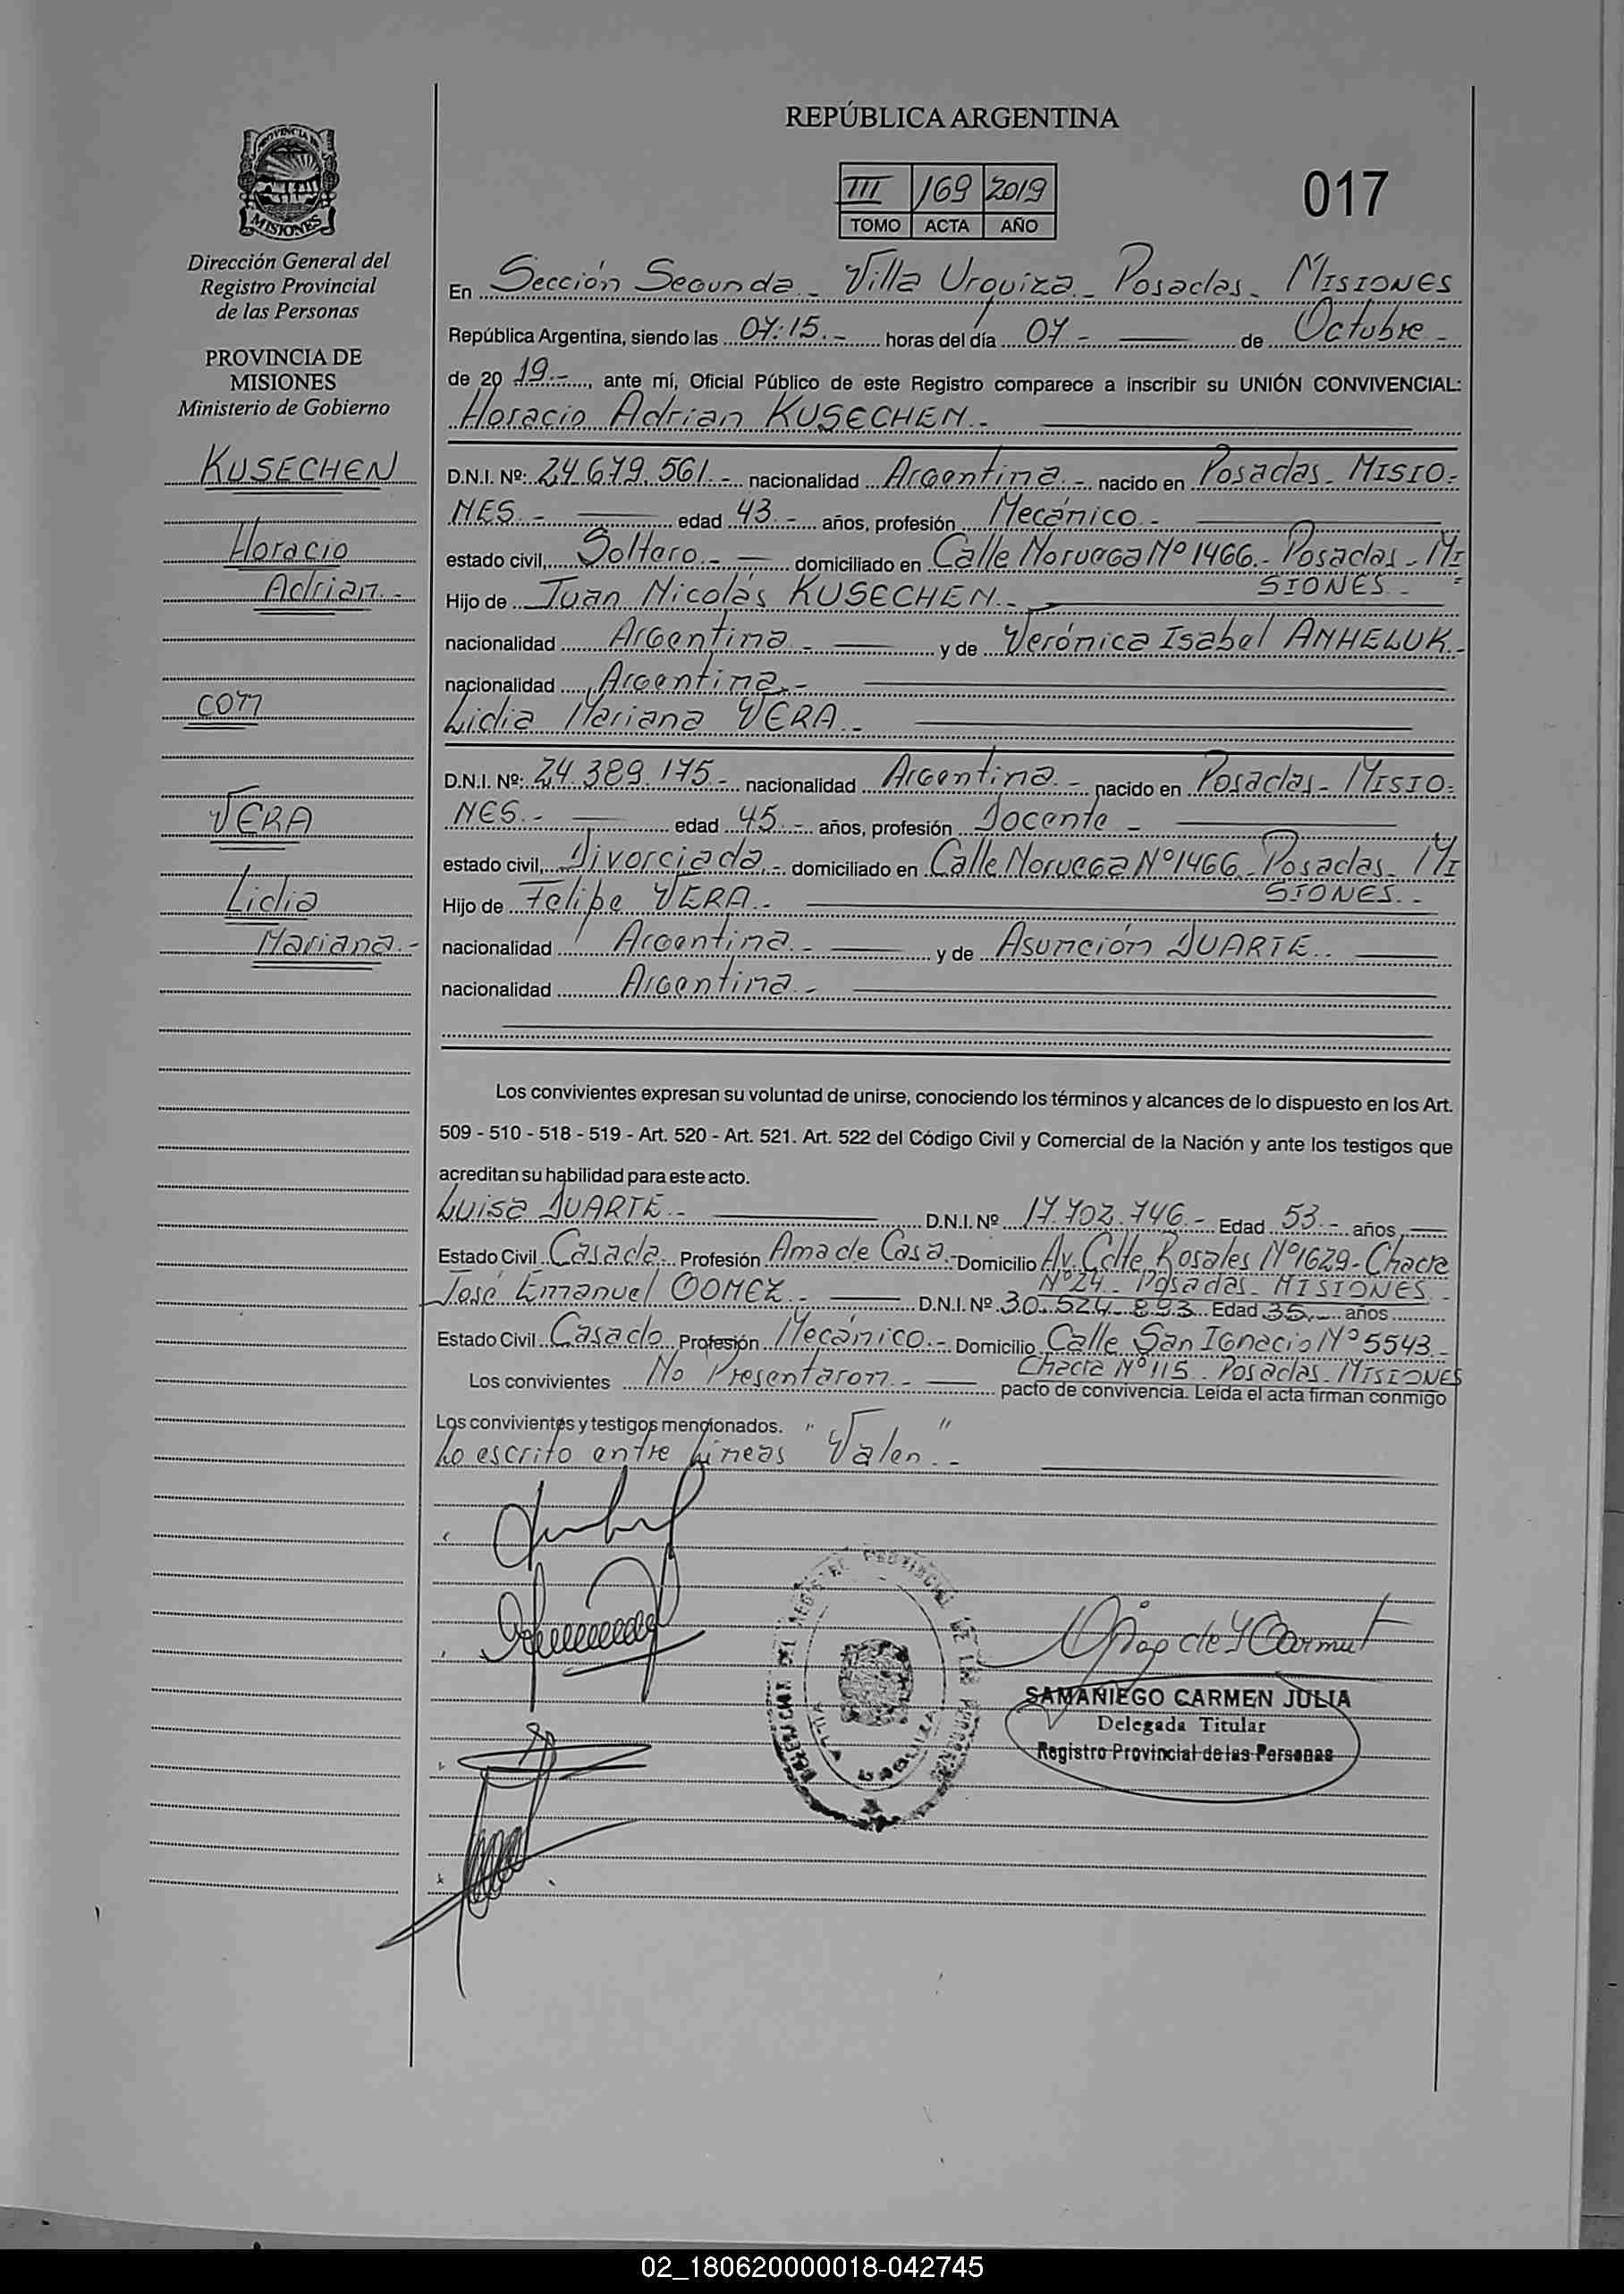 REPÚBLICA ARGENTINA
III 169 2019
TOMO ACTA AÑO
017
PROVINCIA
MISIONES
Dirección General del
Registro Provincial
de las Personas
PROVINCIA DE
MISIONES
Ministerio de Gobierno
KUSECHEN
Horacio
Adrian.-
con
VERA
Lidia
Mariana.-
En Sección Segunda - Villa Urquiza - Posadas - MISIONES
República Argentina, siendo las 07:15.- horas del día 07.- de Octubre -
de 20 19.-, ante mí, Oficial Público de este Registro comparece a inscribir su UNIÓN CONVIVENCIAL:
Horacio Adrian KUSECHEN.-
D.N.I. Nº: 24.679.561.- nacionalidad Argentina.- nacido en Posadas - MISIO-
NES.- edad 43.- años, profesión Mecánico -
estado civil, Soltero.- domiciliado en Calle Noruega Nº 1466 - Posadas - MI-
SIONES.-
Hijo de Juan Nicolás KUSECHEN.-
nacionalidad Argentina.- y de Verónica Isabel ANHELUK.-
nacionalidad Argentina.-
Lidia Mariana VERA.-
D.N.I. Nº: 24.389.175.- nacionalidad Argentina.- nacido en Posadas - MISIO-
NES.- edad 45.- años, profesión Docente -
estado civil, Divorciada.- domiciliado en Calle Noruega Nº 1466 - Posadas - MI
SIONES.-
Hijo de Felipe VERA.-
nacionalidad Argentina.- y de Asunción DUARTE.
nacionalidad Argentina.-
Los convivientes expresan su voluntad de unirse, conociendo los términos y alcances de lo dispuesto en los Art.
509 - 510 - 518 - 519 - Art. 520 - Art. 521. Art. 522 del Código Civil y Comercial de la Nación y ante los testigos que
acreditan su habilidad para este acto.
Luisa DUARTE.- D.N.I. Nº 17.702.746.- Edad 53.- años,
Estado Civil Casada. Profesión Ama de Casa.- Domicilio Av. Cdte Rosales Nº 1629 - Chacra
Nº 24 - Posadas - MISIONES.-
José Emanuel GOMEZ.- D.N.I. Nº 30.524.893 Edad 35 años
Estado Civil Casado Profesión Mecánico.- Domicilio Calle San Ignacio Nº 5543.-
Chacra Nº 115. Posadas - MISIONES
Los convivientes No Presentaron.- pacto de convivencia. Leída el acta firman conmigo
Los convivientes y testigos mencionados.
Lo escrito entre Líneas "Valen".-
SAMANIEGO CARMEN JULIA
Delegada Titular
Registro Provincial de las Personas
02_180620000018-042745